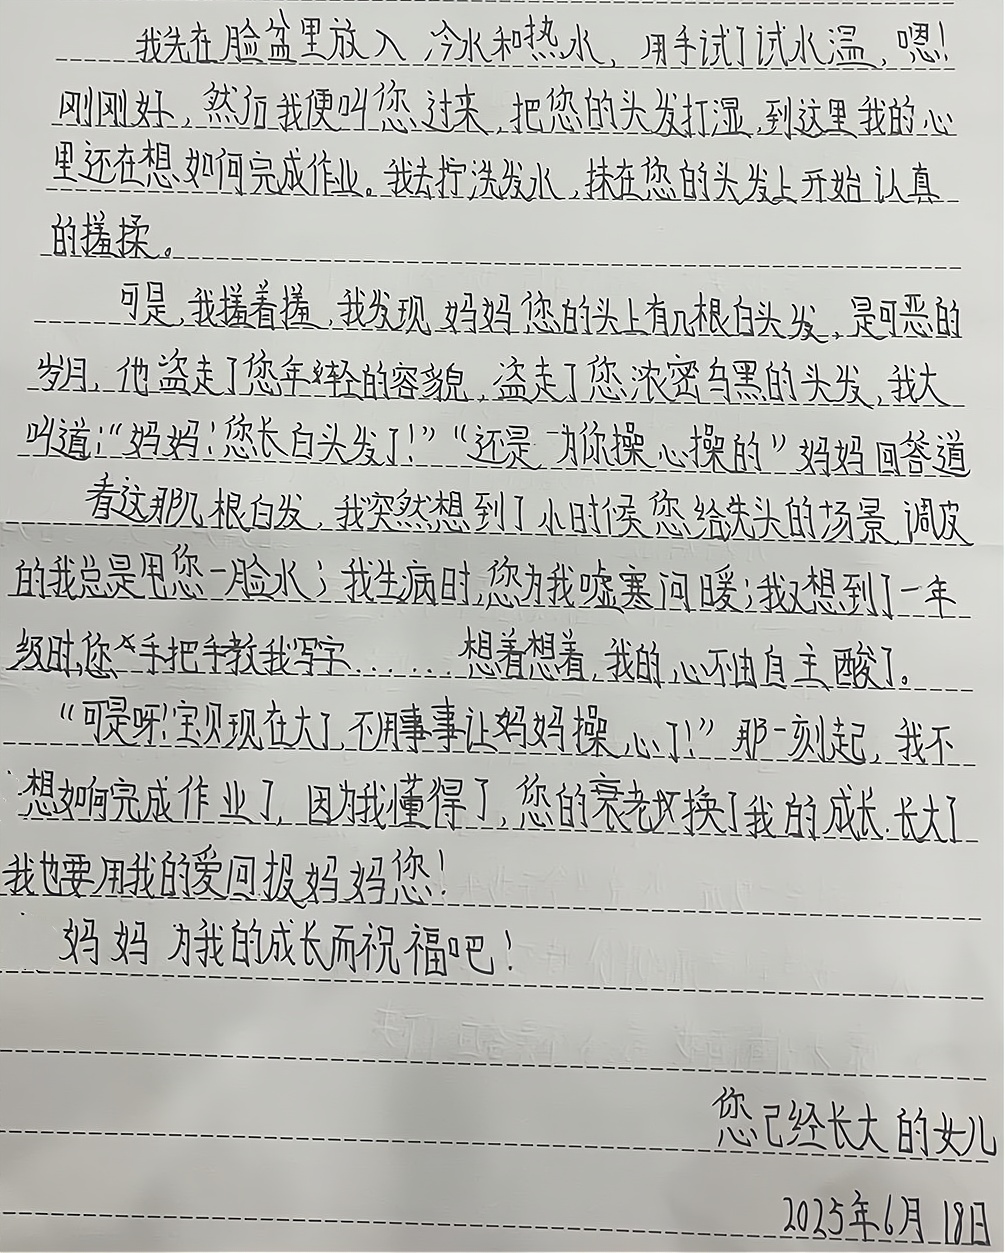 我先在脸盆里放入冷水和热水，用手试了试水温，嗯！
刚刚好，然后我便叫您过来，把您的头发打湿，到这里我的心
里还在想如何完成作业。我去拧洗发水，抹在您的头发上开始认真
的搓揉。
可是，我搓着搓，我发现妈妈您的头上有几根白头发，是可恶的
岁月，他盗走了您年轻的容貌，盗走了您浓密乌黑的头发，我大
叫道：“妈妈！您长白头发了！”“还是为你操心操的”妈妈回答道
看这那几根白发，我突然想到了小时候您给洗头的场景，调皮
的我总是甩您一脸水；我生病时，您为我嘘寒问暖；我又想到了一年
级时，您手把手教我写字......想着想着，我的心不由自主酸了。
“可是呀！宝贝现在大了，不用事事让妈妈操心了！”那一刻起，我不
想如何完成作业了，因为我懂得了，您的衰老换了我的成长.长大了
我也要用我的爱回报妈妈您！
妈妈为我的成长而祝福吧！
您已经长大的女儿
2025年6月18日